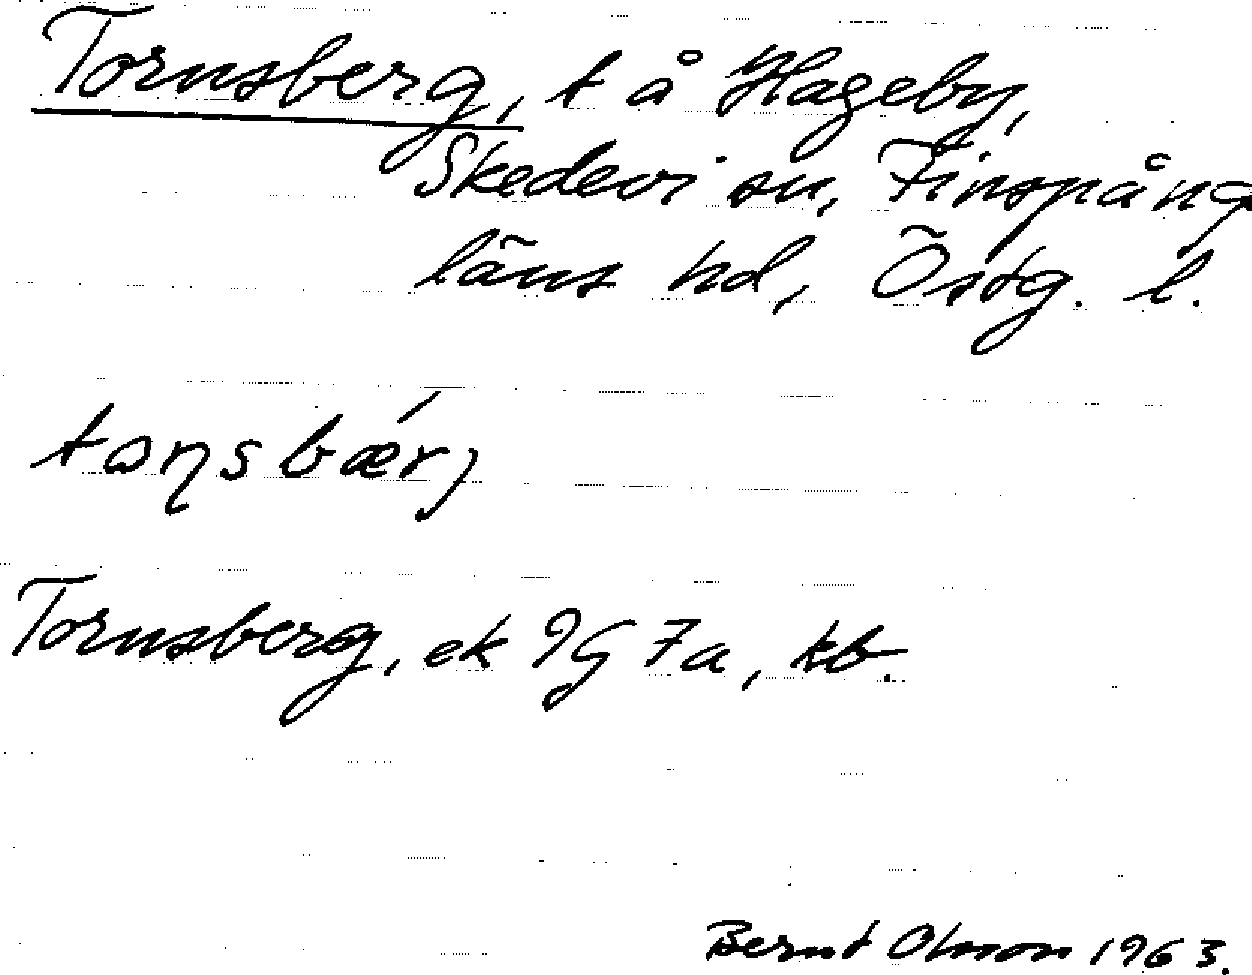 Tornsberg, t å Hageby,
Skedevi sn, Finspång
läns hd, Östg. l.
tɷɳsbǽrj
Tornsberg, ek 9G 7a, kb.
Bernt Olsson 1963.